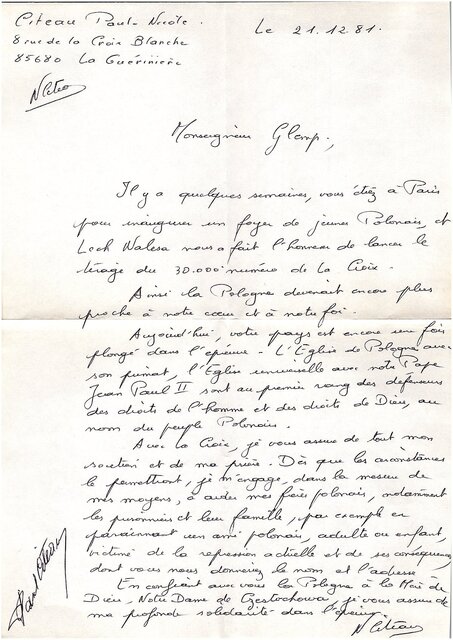 Citeau Paul - Nicole.
8 rue de la Croix Blanche
85680 La Guérinière
Le 21.12.81.
N Citeau
Monseigneur Glemp,
Il y a quelques semaines, vous étiez à Paris
pour inaugurer un foyer de jeunes Polonais, et
Lech Walesa nous a fait l'honneur de lancer le
tirage du 30.000è numéro de La Croix.
Ainsi la Pologne devenait encore plus
proche à notre cœur et à notre foi.
Aujourd'hui, votre pays est encore une fois
plongé dans l'épreuve - L'Eglise de Pologne avec
son primat, l'Eglise universelle avec notre Pape
Jean Paul II sont au premier rang des défenseurs
des droits de l'homme et des droits de Dieu, au
nom du peuple Polonais.
Avec La Croix, je vous assure de tout mon
soutien et de ma prière. Dès que les circonstances
le permettront, je m'engage, dans la mesure de
mes moyens, à aider mes frères polonais, notamment
les prisonniers et leur famille, par exemple en
parrainant un ami polonais, adulte ou enfant,
victime de la répression actuelle et de ses conséquences,
dont vous nous donneriez le nom et l'adresse.
En confiant avec vous la Pologne à la Mère de
Dieu, Notre Dame de Czestochowa, je vous assure de
ma profonde solidarité dans l'épreuve.
N Citeau
Paul Citeau